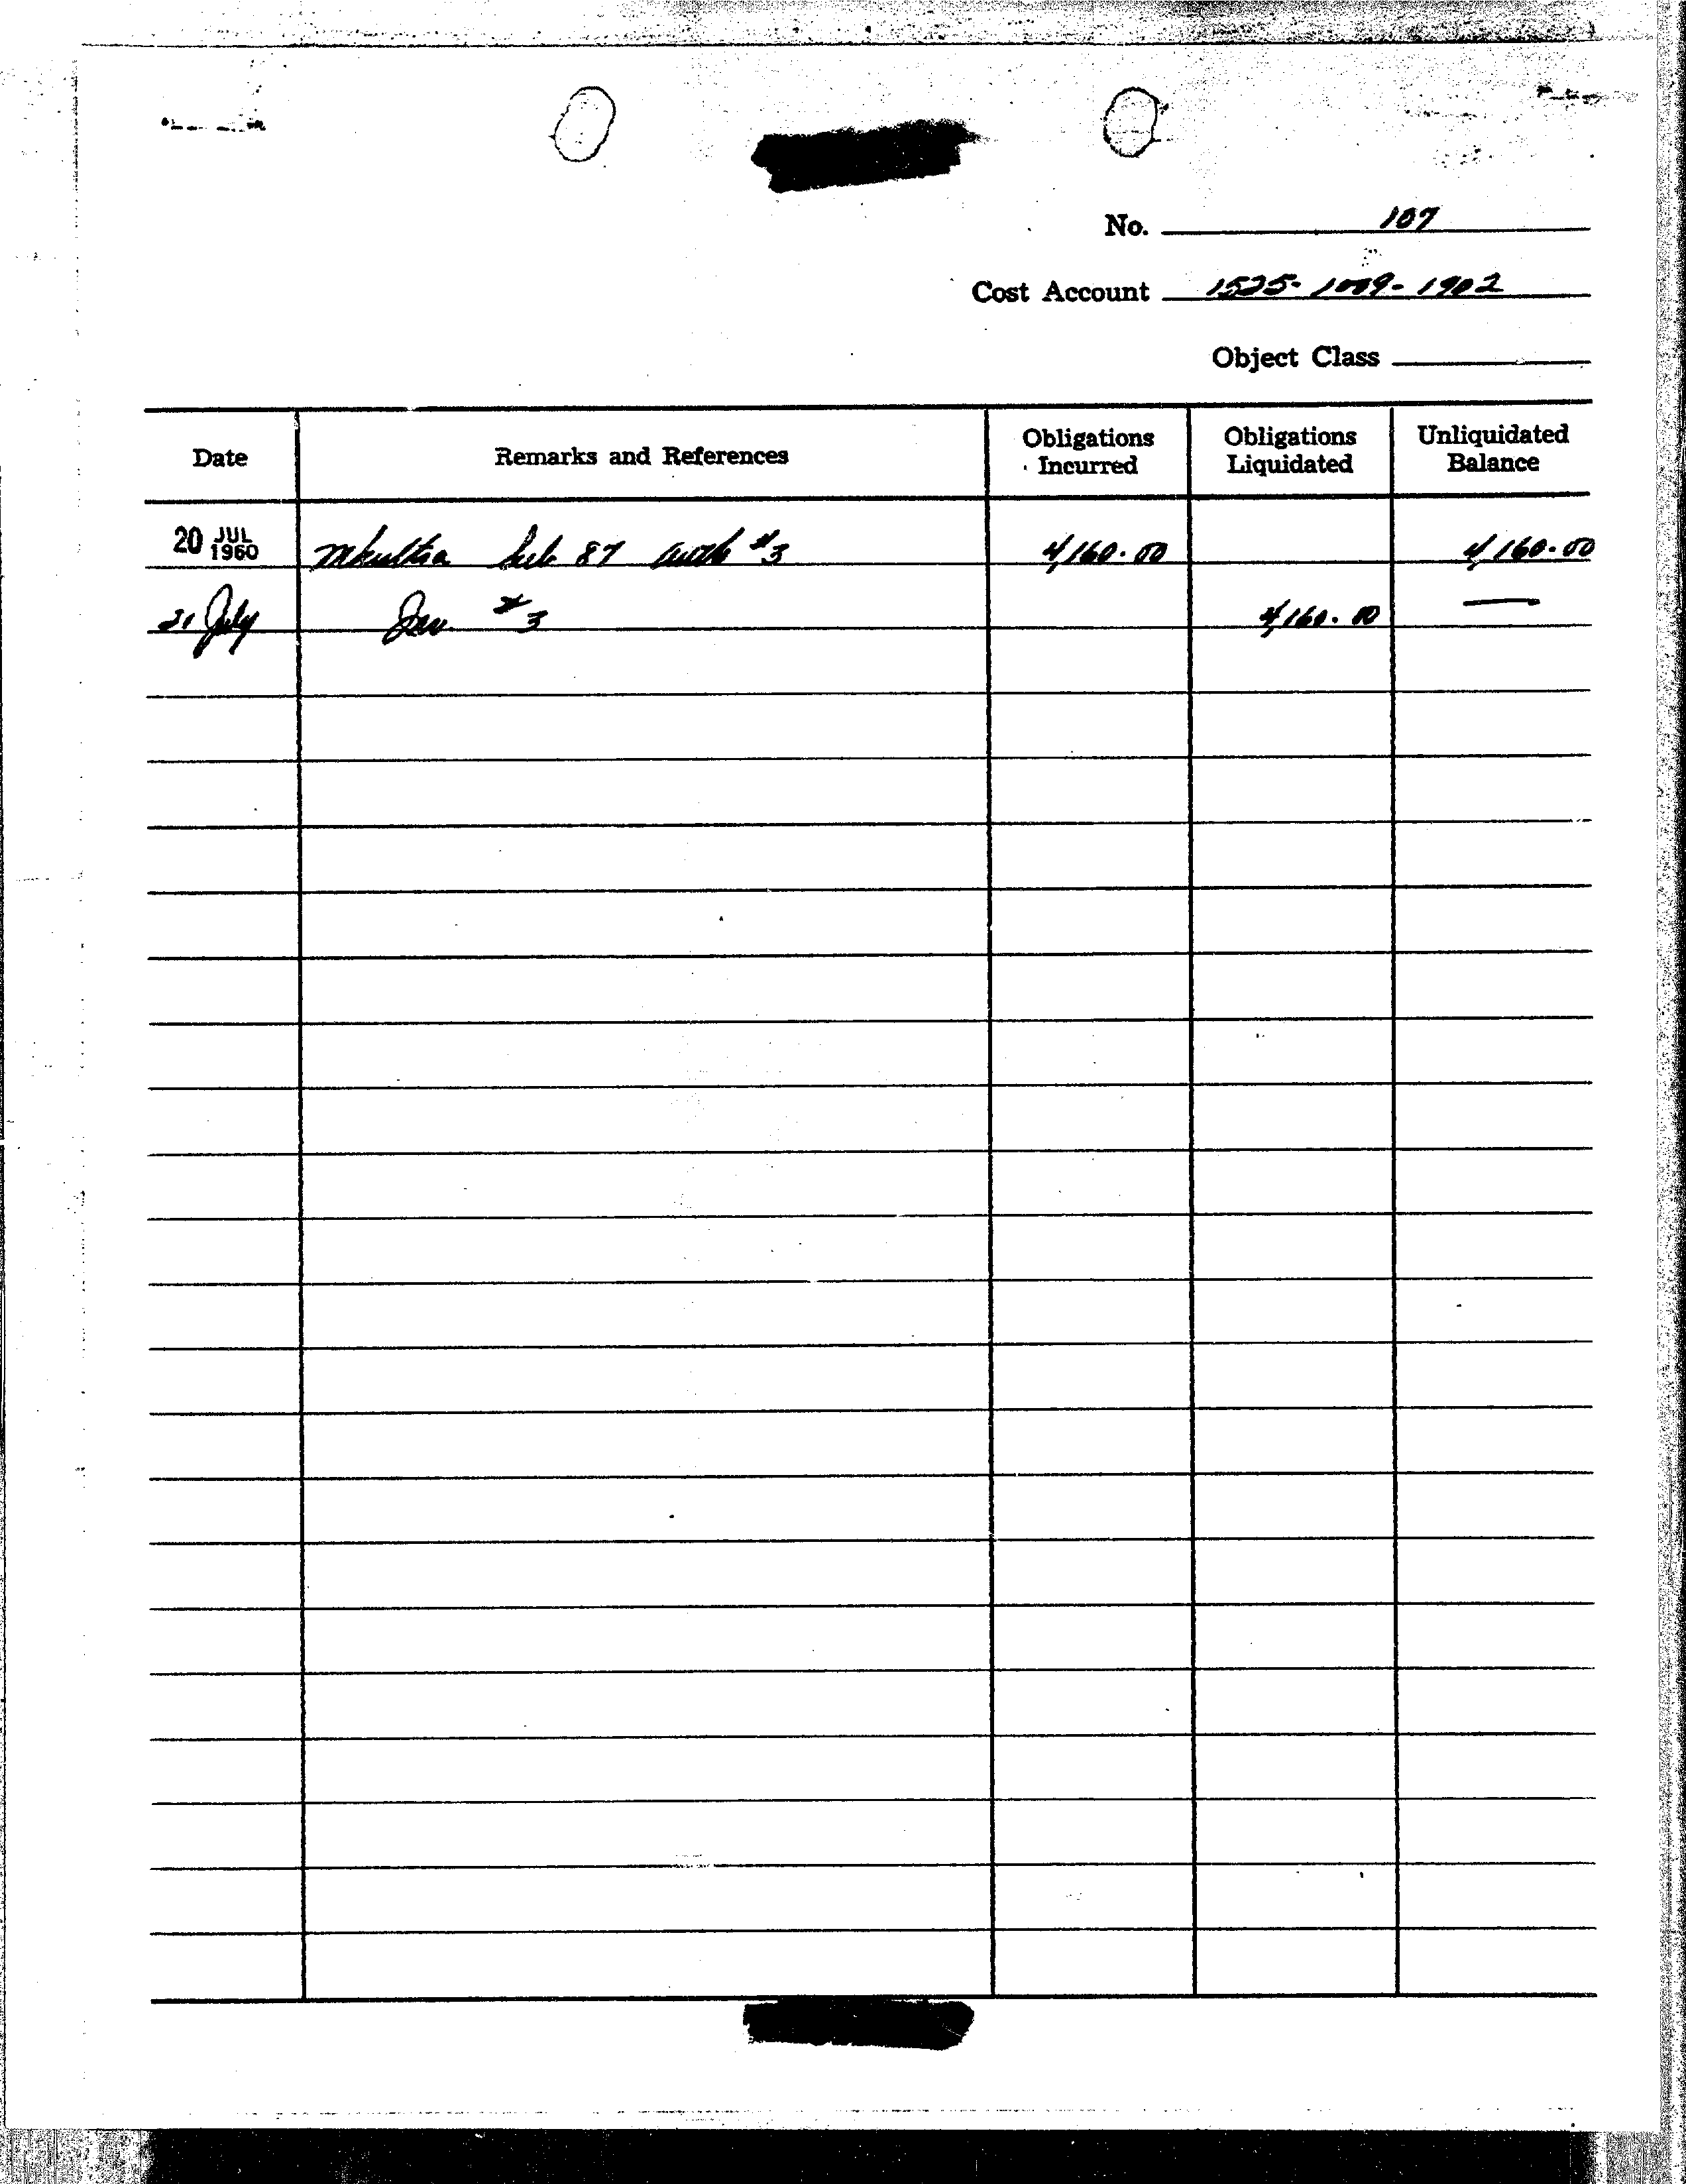 No. 107
Cost Account 1525-1009-1902
Object Class
Date Remarks and References Obligations Incurred Obligations Liquidated Unliquidated Balance
20 JUL 1960 Mkultra Sub 87 auth #3 4,160.00 4,160.00
21 July Inv. #3 4,160.00 —